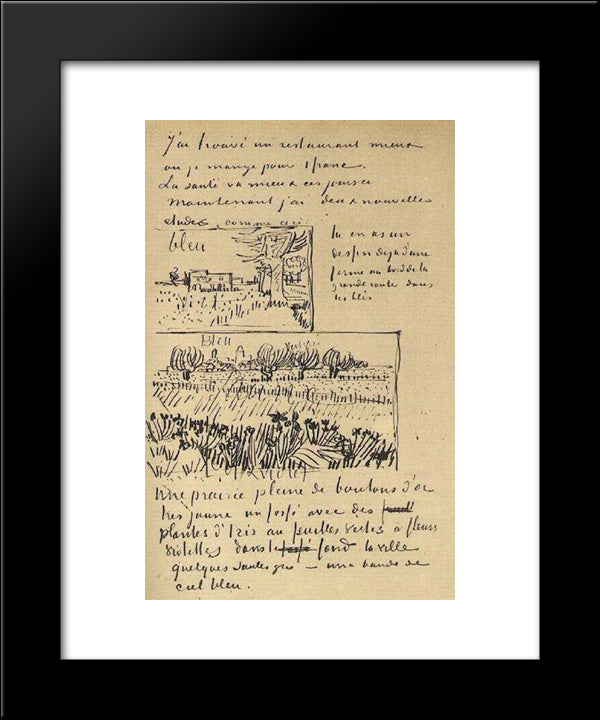 J'ai trouvé un restaurant mieux
ou je mange pour 1 franc.
La santé va mieux ces jours ci
maintenant j'ai deux nouvelles
etudes comme ceci:
bleu
tu en as un
dessin deja d'une
ferme au bord de la
grande route dans
les blés
Bleu
Violet
Une prairie pleine de boutons d'or
tres jaune un fossé avec des
plantes d'Iris au feuilles vertes à fleurs
violettes dans le fossé fond la ville
quelques saules gris — une bande de
ciel bleu.